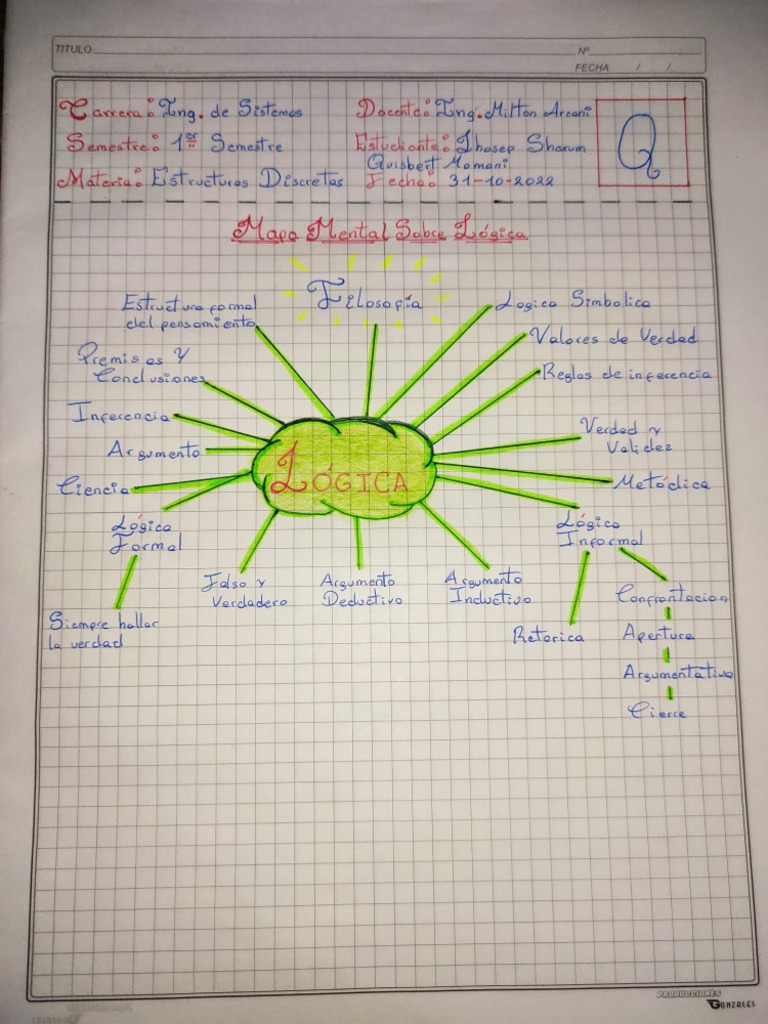 TITULO
Nº
FECHA / /
Carrera: Ing. de Sistemas
Docente: Ing. Milton Arcani
Q
Semestre: 1er Semestre
Estudiante: Jhosep Sharum
Quisbert Mamani
Materia: Estructuras Discretas
Fecha: 31-10-2022
Mapa Mental Sobre Lógica
Estructura formal
del pensamiento
Filosofía
Logica Simbolica
Valores de Verdad
Premisas y
Conclusiones
Reglas de inferencia
Inferencia
Verdad y
Validez
Argumento
LÓGICA
Ciencia
Metódica
Lógica
Formal
Lógica
Informal
Falso y
Verdadero
Argumento
Deductivo
Argumento
Inductivo
Confrontacion
Siempre hallar
la verdad
Retorica
Apertura
Argumentativa
Cierre
PRODUCCIONES
GONZALES